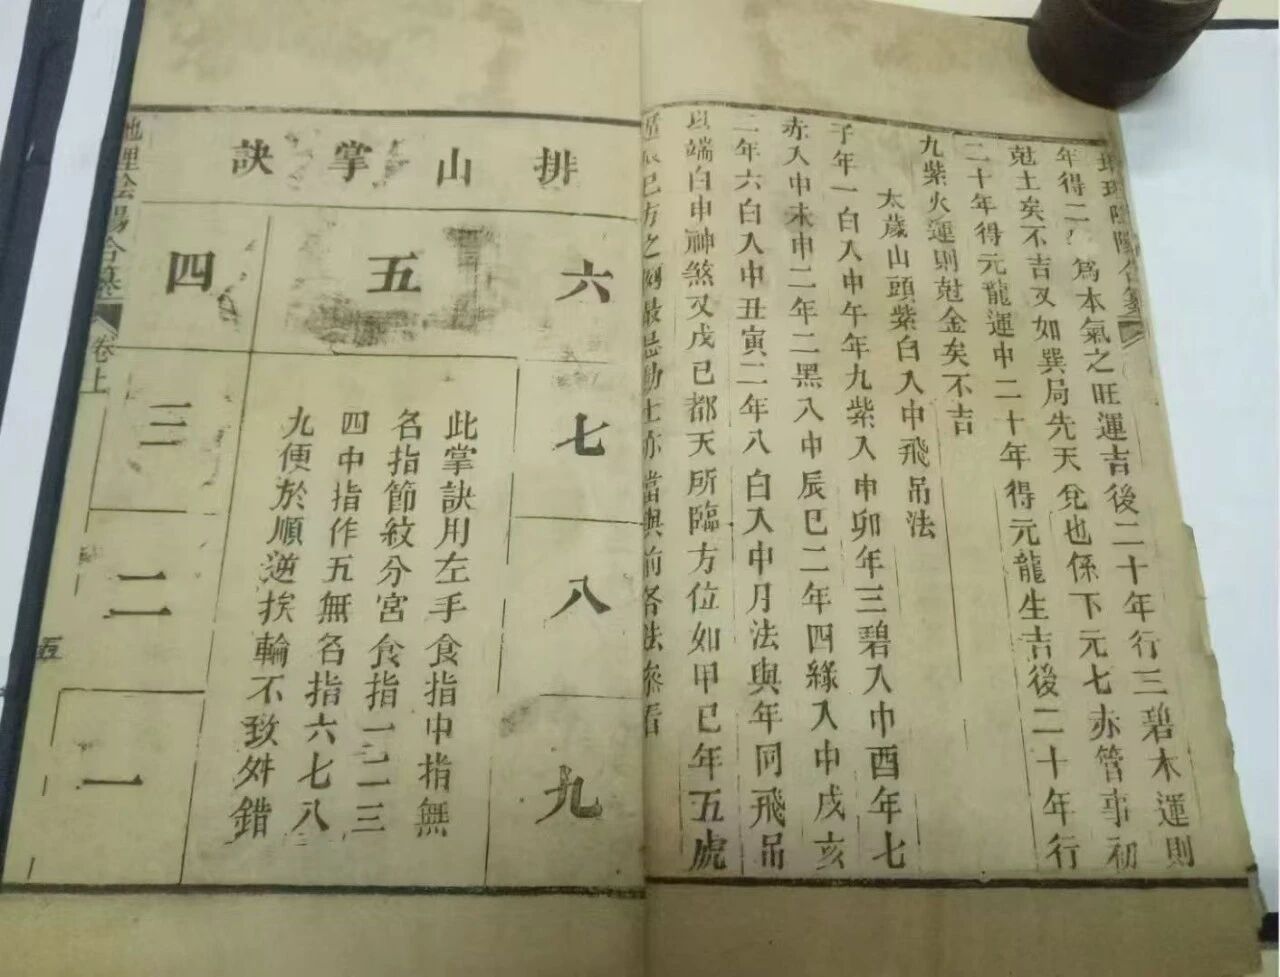 陰陽合纂
年得二為本氣之旺運吉後二十年行三碧木運則
尅土矣不吉又如巽局先天兌也係下元七赤管事初
二十年得元龍運中二十年得元龍生吉後二十年行
九紫火運則尅金矣不吉
太歲山頭紫白入中飛吊法
子年一白入中午年九紫入中卯年三碧入中酉年七
赤入中未申二年二黑入中辰巳二年四緣入中戌亥
二年六白入中丑寅二年八白入中月法與年同飛吊
以端白中神煞又戊己都天所臨方位如甲己年五虎
辰巳方之例最忌動土亦當與前各法參看
排山掌訣
六
七
八
九
五
此掌訣用左手食指中指無
名指節紋分宮食指一二三
四中指作五無名指六七八
九便於順逆挨輪不致舛錯
四
三
二
一
地理陰陽合纂
卷上
五